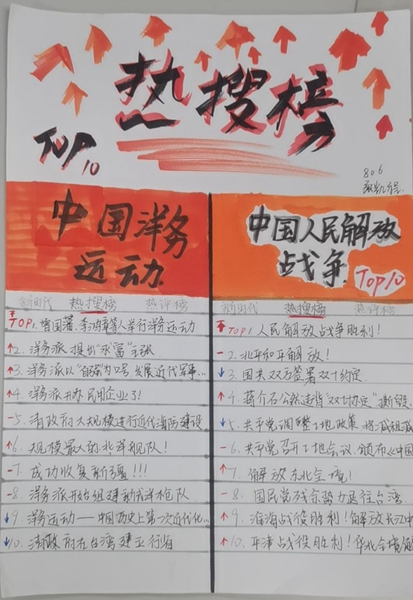 热搜榜
TOP10
806
中国洋务
运动
中国人民解放
战争
TOP10
新时代 热搜榜 热评榜
TOP1. 曾国藩、李鸿章等人举行洋务运动
2. 洋务派提出"求富"主张
3. 洋务派以"自强"为口号发展近代军事...
4. 洋务派开办民用企业了!
5. 清政府大规模进行近代海防建设
6. 规模最大的北洋舰队!
7. 成功收复新疆!!!
8. 洋务派开始组建新式洋枪队
9. 洋务运动——中国历史上第一次近代化...
10. 清政府在台湾建立行省
新时代 热搜榜 热评榜
TOP1 人民解放战争胜利!
2. 北平和平解放!
3. 国共双方签署双十协定
4. 蒋介石公然违背"双十协定"
5. 共产党调整土地政策
6. 共产党召开土地会议,颁布《中国
7. 解放东北全境!
8. 国民党残余势力居住台湾
9. 淮海战役胜利!解放长江中
10. 平津战役胜利!华北全境